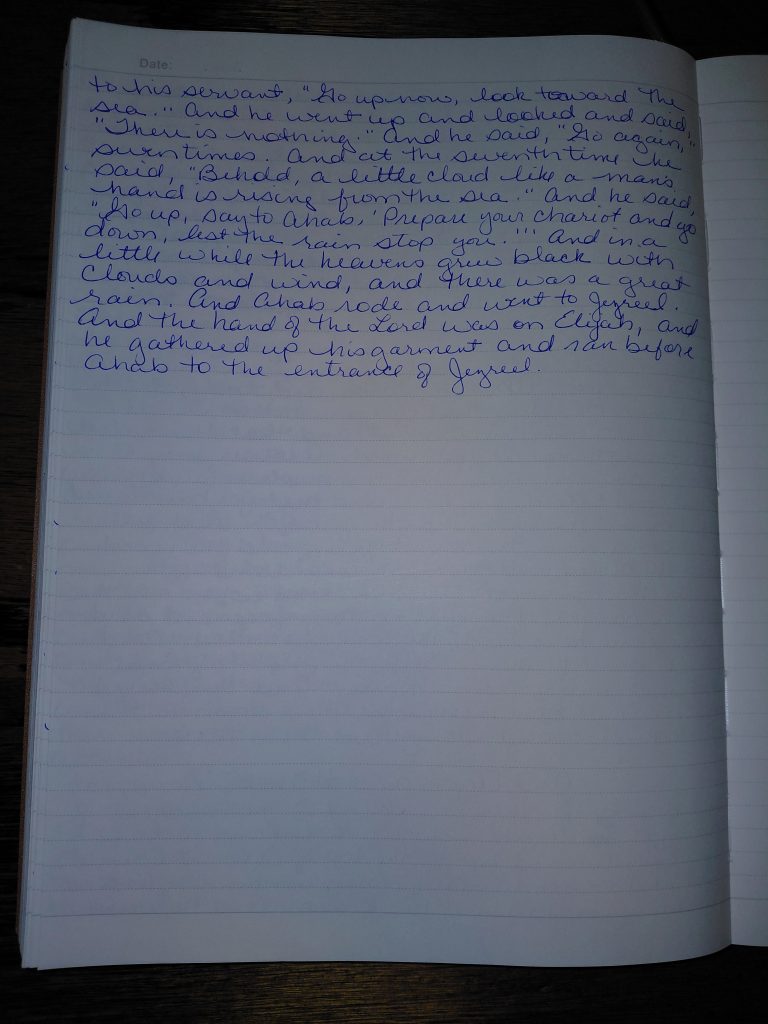 Date:
to his servant, "Go up now, look toward the
sea." And he went up and looked and said,
"There is nothing." And he said, "Go again,"
seven times. And at the seventh time he
said, "Behold, a little cloud like a man's
hand is rising from the sea." And he said,
"Go up, say to Ahab, 'Prepare your chariot and go
down, lest the rain stop you.'" And in a
little while the heavens grew black with
clouds and wind, and there was a great
rain. And Ahab rode and went to Jezreel.
And the hand of the Lord was on Elijah, and
he gathered up his garment and ran before
Ahab to the entrance of Jezreel.